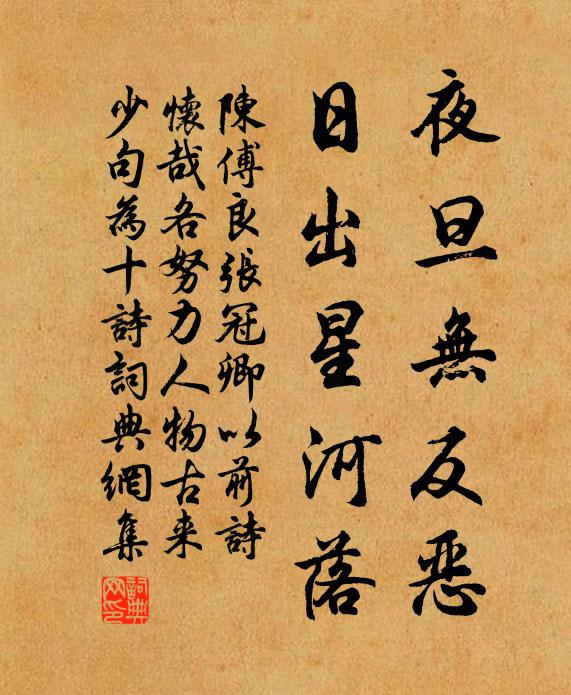 夜旦無反惡
日出星河落
陳傅良張冠卿以前詩
懷哉各努力人物古来
少句為十詩詞典網集
詞典網印